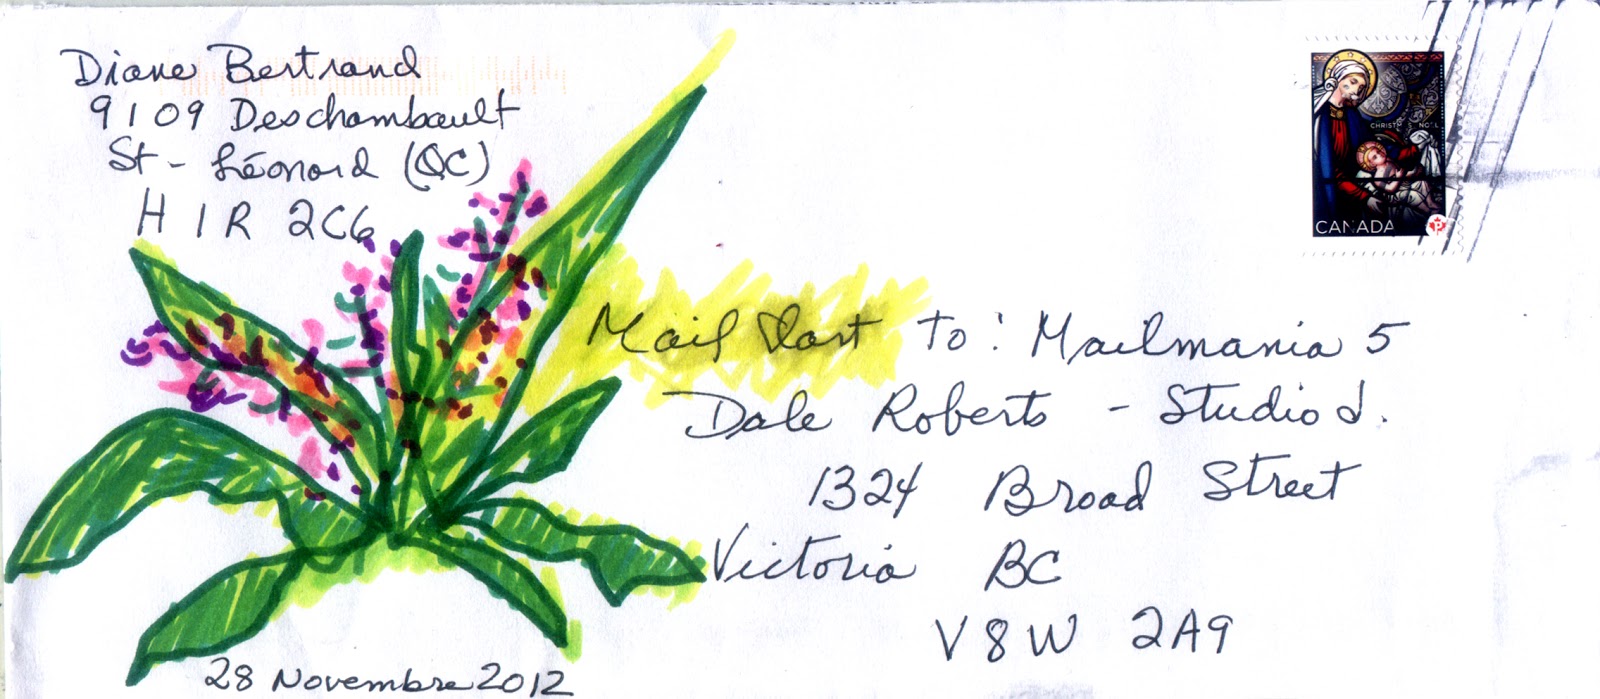 Diane Bertrand
9109 Deschambault
St-Léonard (QC)
H1R 2C6
CHRISTMAS NOËL
CANADA
P
Mail Dart To: Mailmania 5
Dale Roberts - Studio J.
1324 Broad Street
Victoria BC
V8W 2A9
28 Novembre 2012